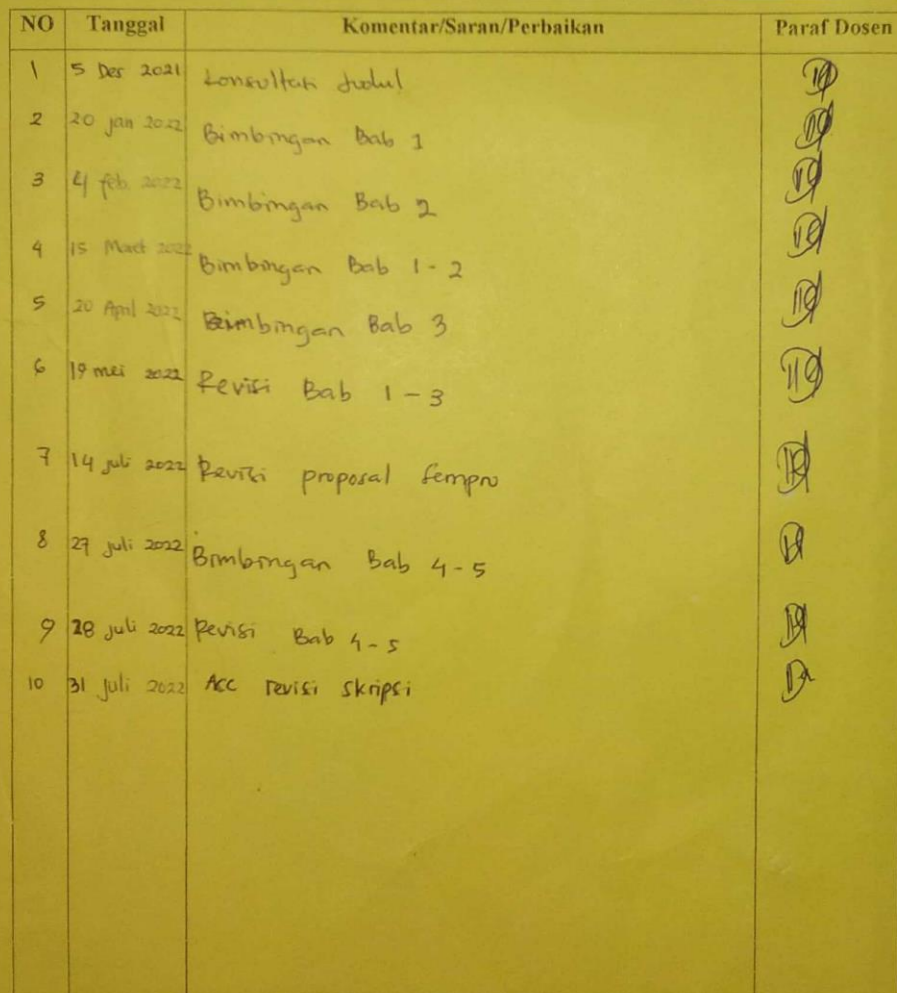 NO Tanggal Komentar/Saran/Perbaikan Paraf Dosen
1 5 Des 2021 Konsultasi Judul
2 20 jan 2022 Bimbingan Bab 1
3 4 feb. 2022 Bimbingan Bab 2
4 15 Maret 2022 Bimbingan Bab 1-2
5 20 April 2022 Bimbingan Bab 3
6 19 mei 2022 Revisi Bab 1-3
7 14 juli 2022 Revisi proposal Sempro
8 27 juli 2022 Bimbingan Bab 4-5
9 28 juli 2022 Revisi Bab 4-5
10 31 juli 2022 Acc revisi skripsi